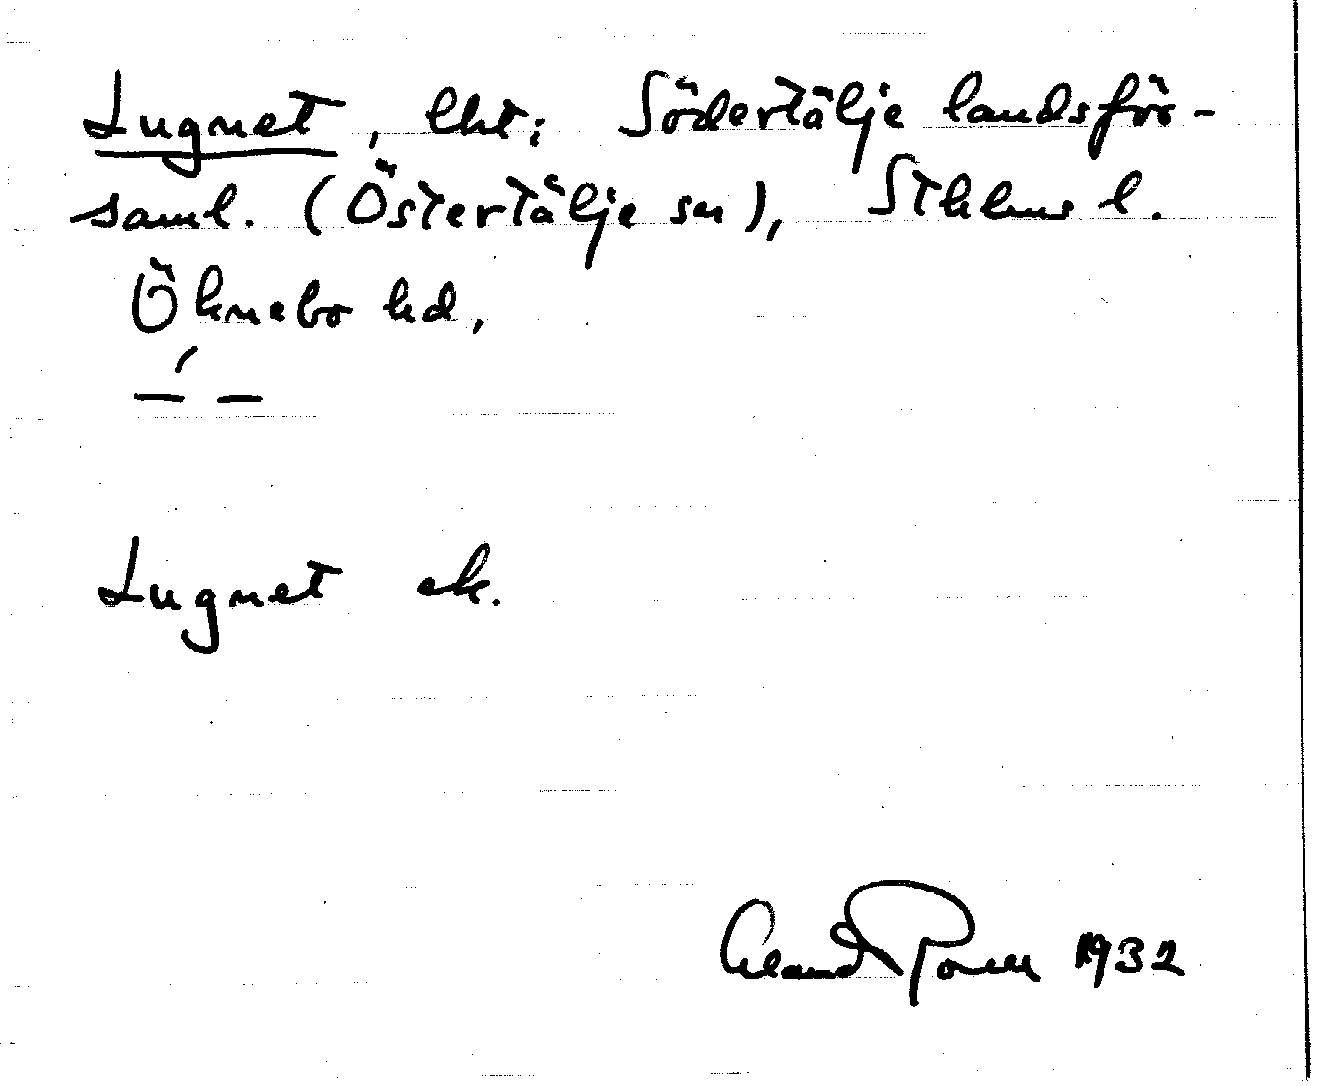 Lugnet, lht; Södertälje landsför-
saml. (Östertälje sn), Sthlms l.
Öknebo hd,
Lugnet ek.
1932